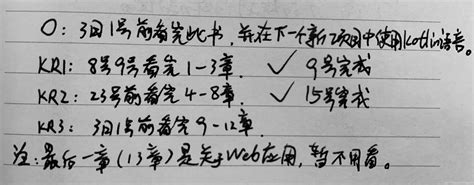 O: 3月1号前看完此书,并在下一个新项目中使用Kotlin语言。
KR1: 8号9号看完1-3章. ✓ 9号完成
KR2: 23号前看完4-8章. ✓ 15号完成
KR3: 3月1号前看完9-12章.
注:最后一章(13章)是关于Web应用,暂不用看。